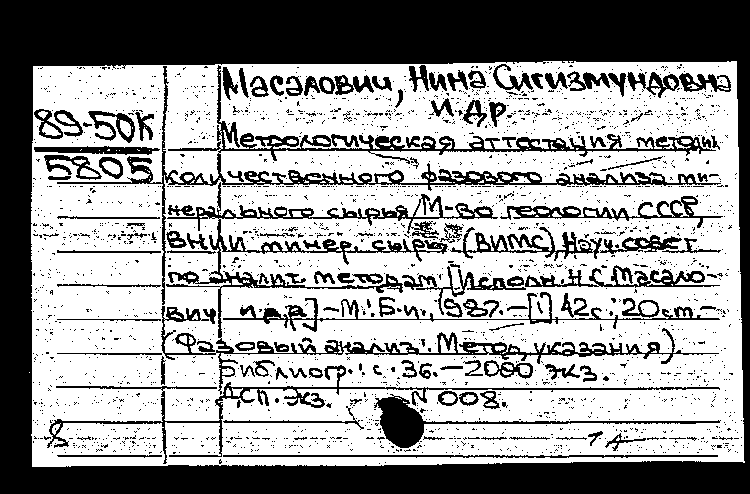 Масалович, Нина Сигизмундовна
и др.
89-50К
5805
Метрологическая аттестация методик
количественного фазового анализа ми-
нерального сырья/М-во геологии СССР,
ВНИИ минер. сырья (ВИМС), Науч. совет
по аналит. методам; [Исполн. Н.С. Масало-
вич и др.].-М.: Б.и., 1987.-[1], 42с.; 20см.-
(Фазовый анализ: Метод. указания).
Библиогр.: с. 36.-2000 экз.
ДСП. Экз. N 008.
8